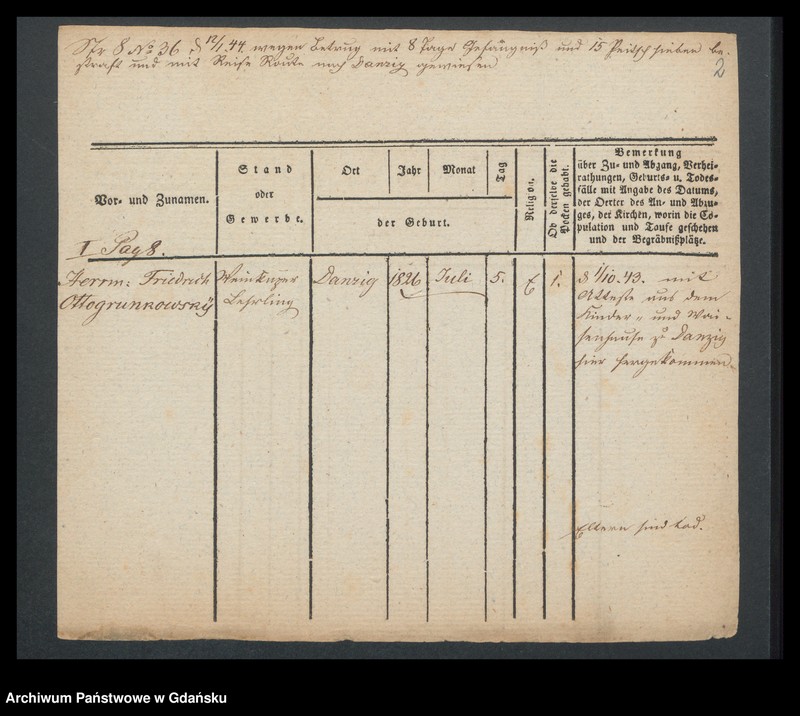 Str 8 No 36 d 12/1.44. wegen Betrug mit 8 Tage Gefängniß und 15 Peitschhieben be-
straft und mit Reise Route nach Danzig gewiesen
2
Vor- und Zunamen.
Stand
oder
Gewerbe.
Ort
Jahr
Monat
Tag
der Geburt.
Religion.
Ob derselbe die
Pocken gehabt.
Bemerkung
über Zu- und Abgang, Verhei-
rathungen, Geburts- u. Todes-
fälle mit Angabe des Datums,
der Oerter des An- und Abzu-
ges, der Kirchen, worin die Co-
pulation und Taufe geschehen
und der Begräbnißplätze.
I Pag 8.
Herrm: Friedrich
Ottogrunkowskÿ
Weinküper
Lehrling
Danzig
1826
Juli
5.
E
1.
d 1/10.43. mit
Atteste aus dem
Kinder- und Wai-
senhause zu Danzig
hier hergekommen.
Eltern sind tod.
Archiwum Państwowe w Gdańsku